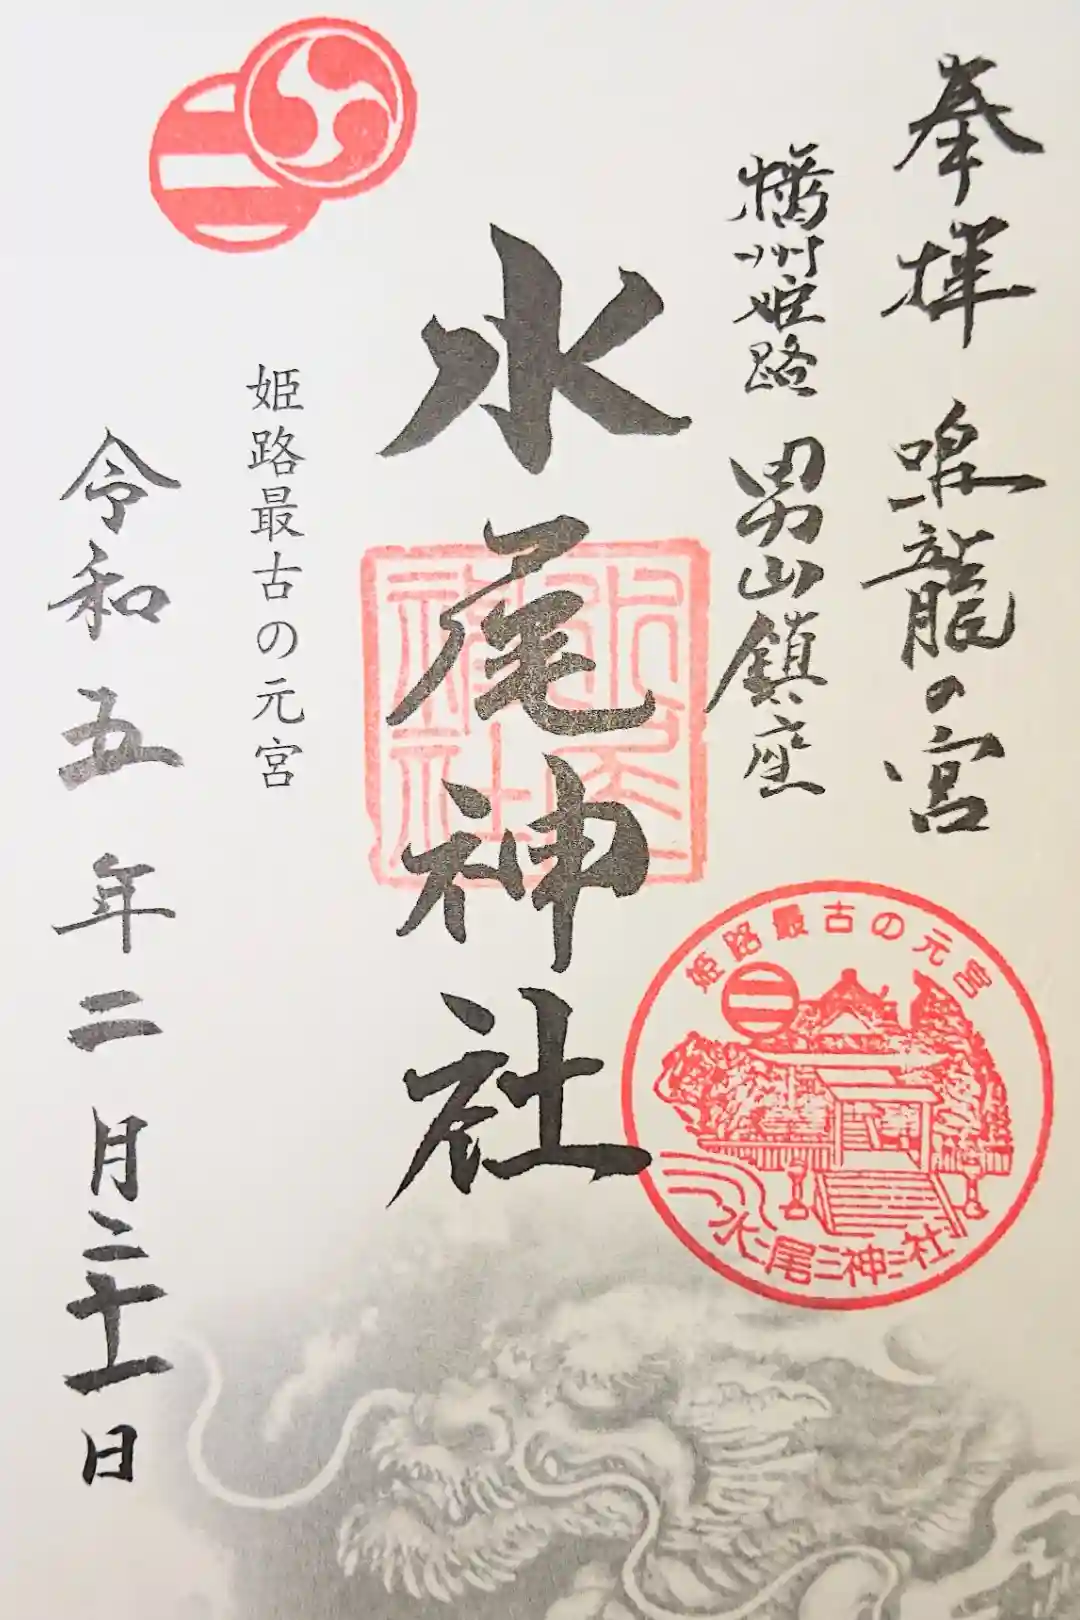 奉拝 鳴龍の宮
播州姫路 男山鎮座
水尾神社
水尾神社
姫路最古の元宮
令和五年二月二十一日
姫路最古の元宮
水尾神社